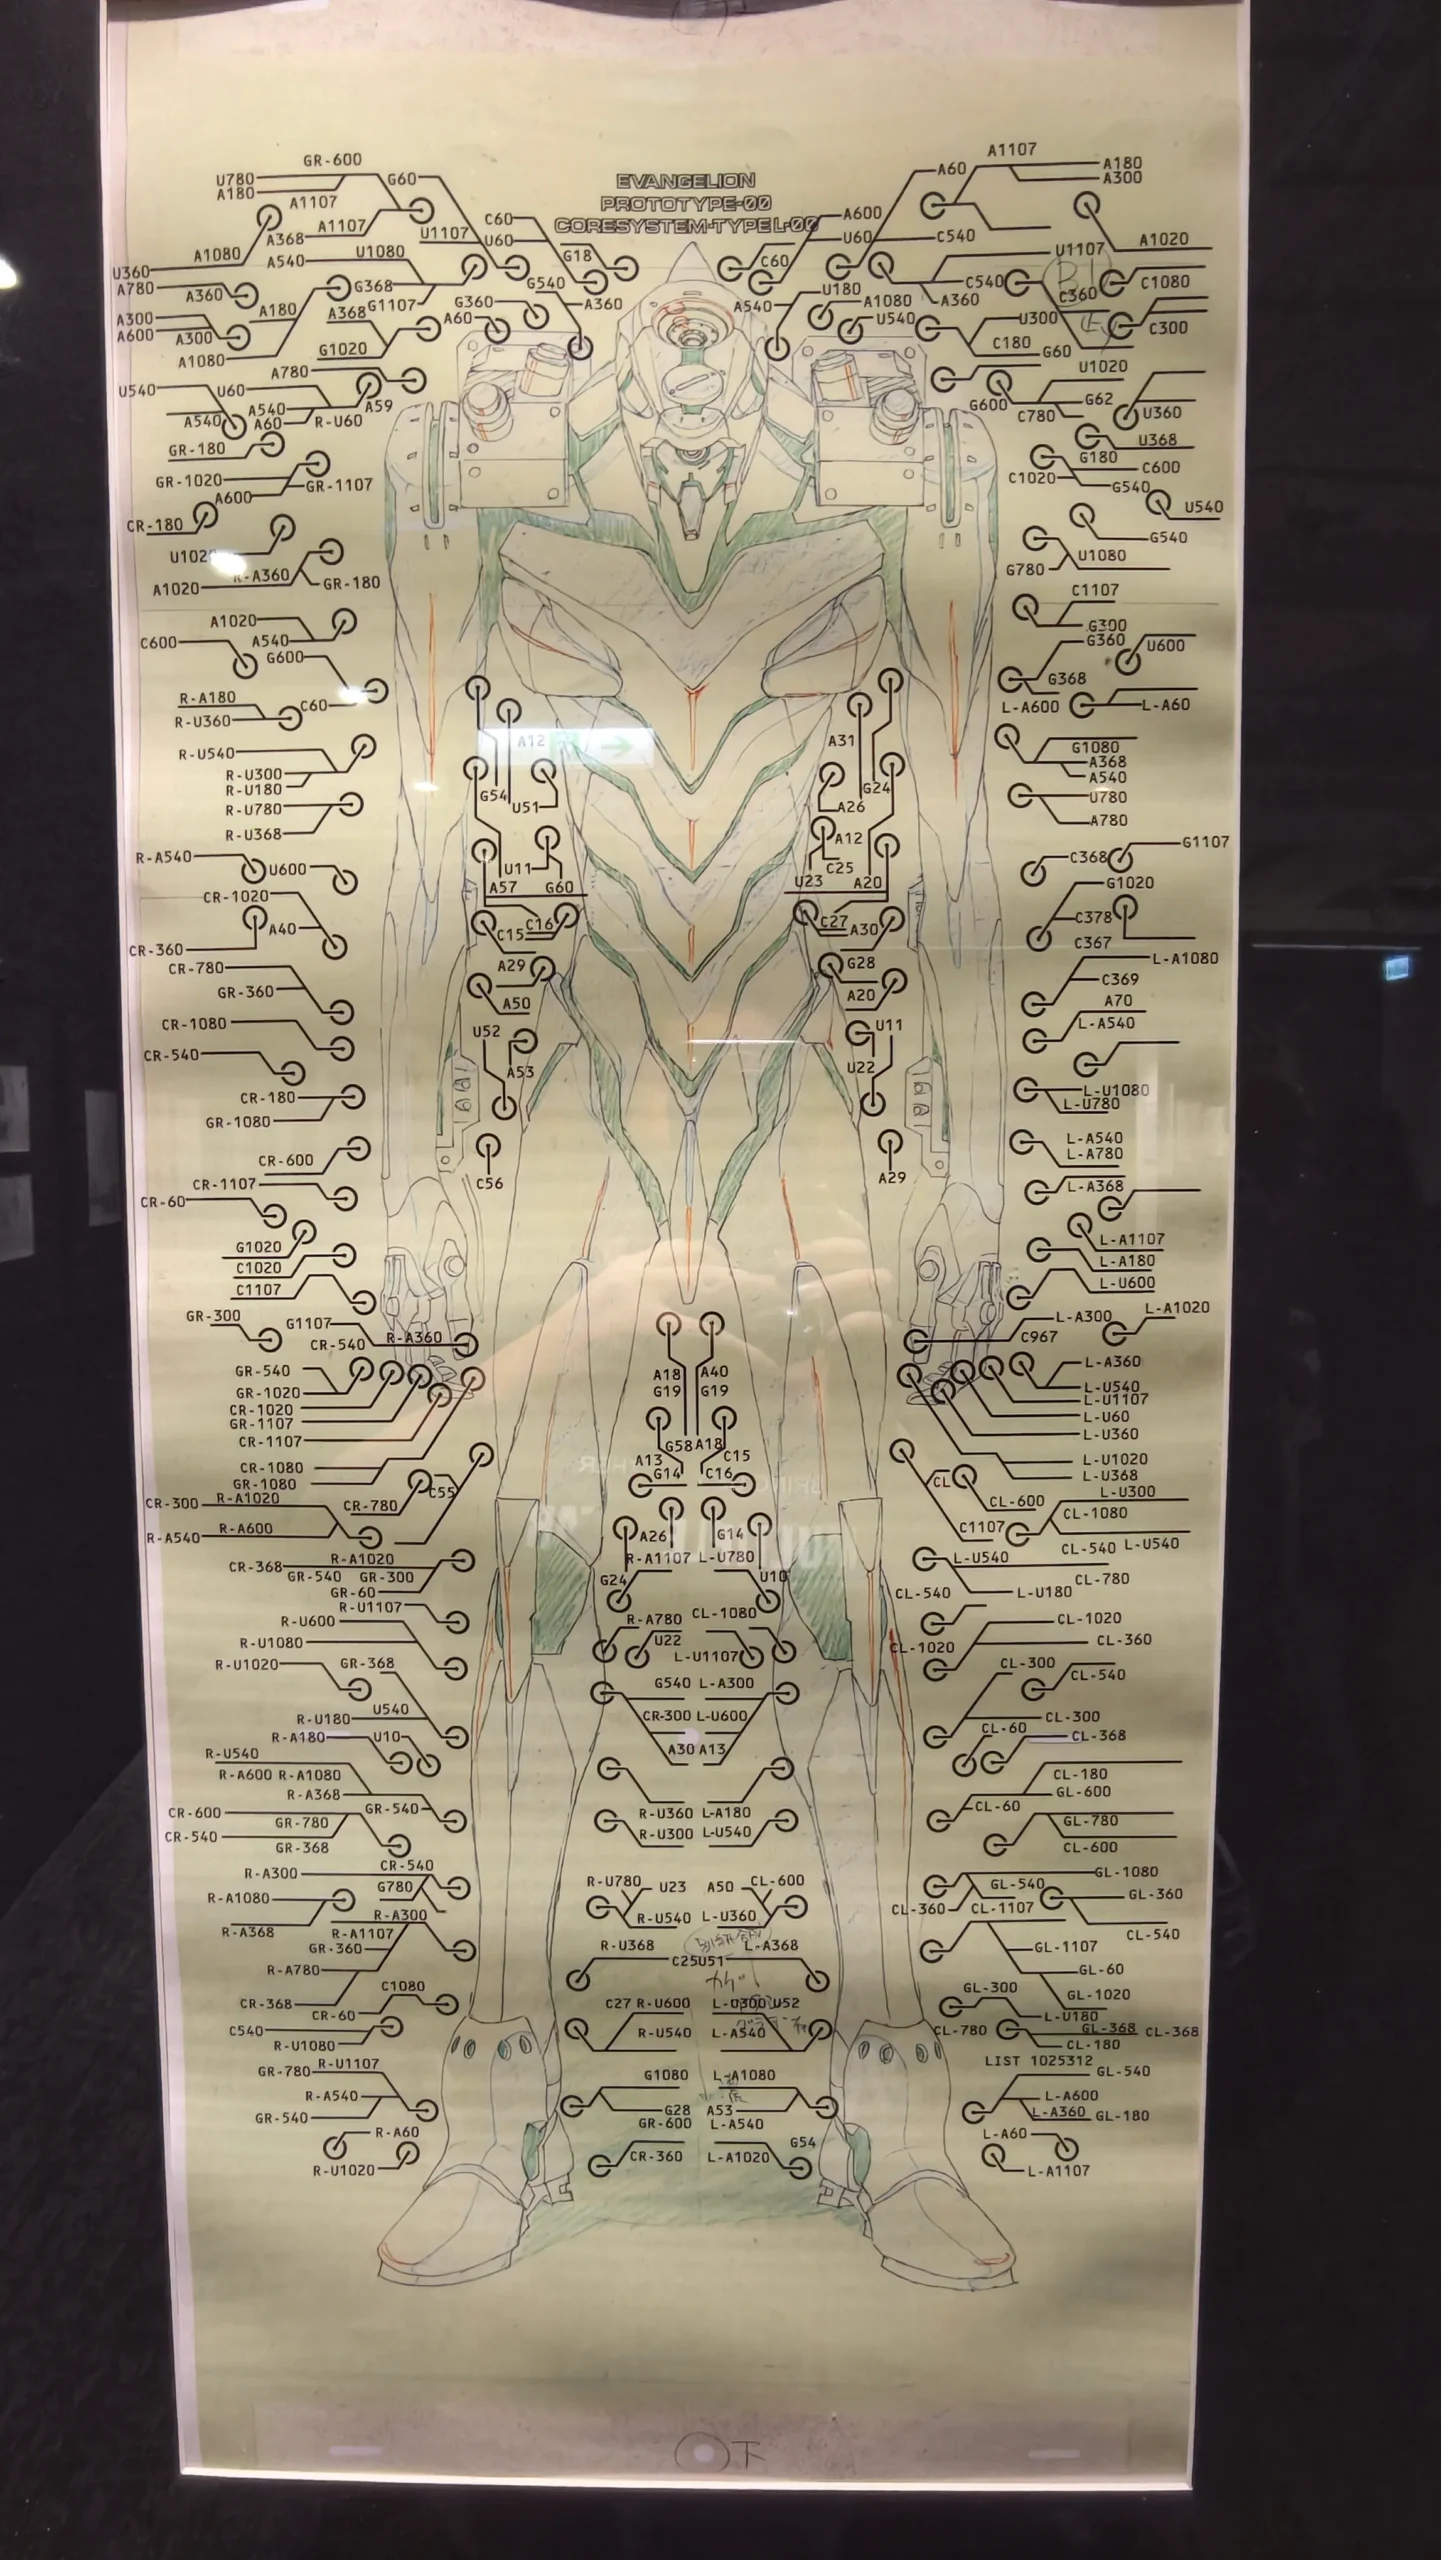 GR-600
U780
A180
G60
A1107
A1107
A368
U1107
A1080
A540
U1080
U360
A780
A360
G368
A180
G1107
A300
A600
A300
A368
A1080
G1020
A60
G360
C60
U60
G18
G540
A360
EVANGELION
PROTOTYPE-00
CORESYSTEM-TYPE L-00
A1107
A60
A180
A300
A600
U60
C540
C60
U1107
A1020
C540
C360
C1080
A540
U180
A1080
A360
U540
U300
C300
C180
G60
U1020
A780
U540
U60
A540
A540
A60
R-U60
A59
GR-180
GR-1020
A600
GR-1107
CR-180
A1020
R-A360
GR-180
A1020
A540
C600
G600
R-A180
R-U360
C60
R-U540
R-U300
R-U180
R-U780
R-U368
R-A540
U600
CR-1020
A40
CR-360
CR-780
GR-360
CR-1080
CR-540
CR-180
GR-1080
CR-600
CR-1107
CR-60
G1020
C1020
C1107
GR-300
G1107
CR-540
R-A360
GR-540
GR-1020
CR-1020
GR-1107
CR-1107
CR-1080
GR-1080
CR-300
R-A1020
CR-780
C55
R-A540
R-A600
CR-368
R-A1020
GR-540
GR-300
GR-60
R-U1107
R-U600
R-U1080
R-U1020
GR-368
R-U180
U540
R-A180
U10
R-U540
R-A600
R-A1080
R-A368
CR-600
GR-540
GR-780
CR-540
GR-368
R-A300
CR-540
G780
R-A1080
R-A300
R-A368
R-A1107
GR-360
R-A780
C1080
CR-368
CR-60
C540
R-U1080
GR-780
R-U1107
R-A540
GR-540
R-A60
R-U1020
A12
G54
U51
U11
A57
G60
C15
C16
A29
A50
U52
A53
C56
A31
G24
A26
A12
C25
U23
A20
C27
A30
G28
A20
U11
U22
A29
A18
A40
G19
G19
G58
A18
A13
C15
G14
C16
A26
G14
R-A1107
L-U780
G24
U10
R-A780
CL-1080
U22
L-U1107
G540
L-A300
CR-300
L-U600
A30
A13
R-U360
L-A180
R-U300
L-U540
R-U780
U23
A50
CL-600
R-U540
L-U360
R-U368
L-A368
C25
U51
C27
R-U600
L-U300
U52
R-U540
L-A540
G1080
L-A1080
G28
A53
GR-600
L-A540
CR-360
L-A1020
G54
G600
C780
G62
U360
U368
G180
C1020
C600
G540
U540
G540
G780
U1080
C1107
G300
G360
U600
G368
L-A600
L-A60
G1080
A368
A540
U780
A780
G1107
C368
G1020
C378
C367
L-A1080
C369
A70
L-A540
L-U1080
L-U780
L-A540
L-A780
L-A368
L-A1107
L-A180
L-U600
L-A300
L-A1020
C967
L-A360
L-U540
L-U1107
L-U60
L-U360
L-U1020
L-U368
CL
CL-600
L-U300
CL-1080
C1107
CL-540
L-U540
L-U540
CL-780
CL-540
L-U180
CL-1020
CL-1020
CL-360
CL-300
CL-540
CL-300
CL-60
CL-368
CL-180
GL-600
CL-60
GL-780
CL-600
GL-1080
GL-540
GL-360
CL-360
CL-1107
CL-540
GL-1107
GL-60
GL-300
GL-1020
L-U180
CL-780
GL-368
CL-368
CL-180
LIST 1025312
GL-540
L-A600
L-A360
GL-180
L-A60
L-A1107
下